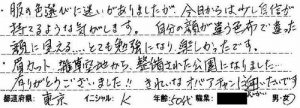 ・服の色選びに迷いがありましたが、今日からは少し自信が
持てるような気がします。自分の顔が違う色布で違った
顔に見える…とても勉強になり楽しかったです。
・肩カット、雑草空地から、整備された公園になりました。
ありがとうございました!! きれいなオバアチャンに
都道府県: 東京 イニシャル: K 年齢: 50代 職業: 男・女